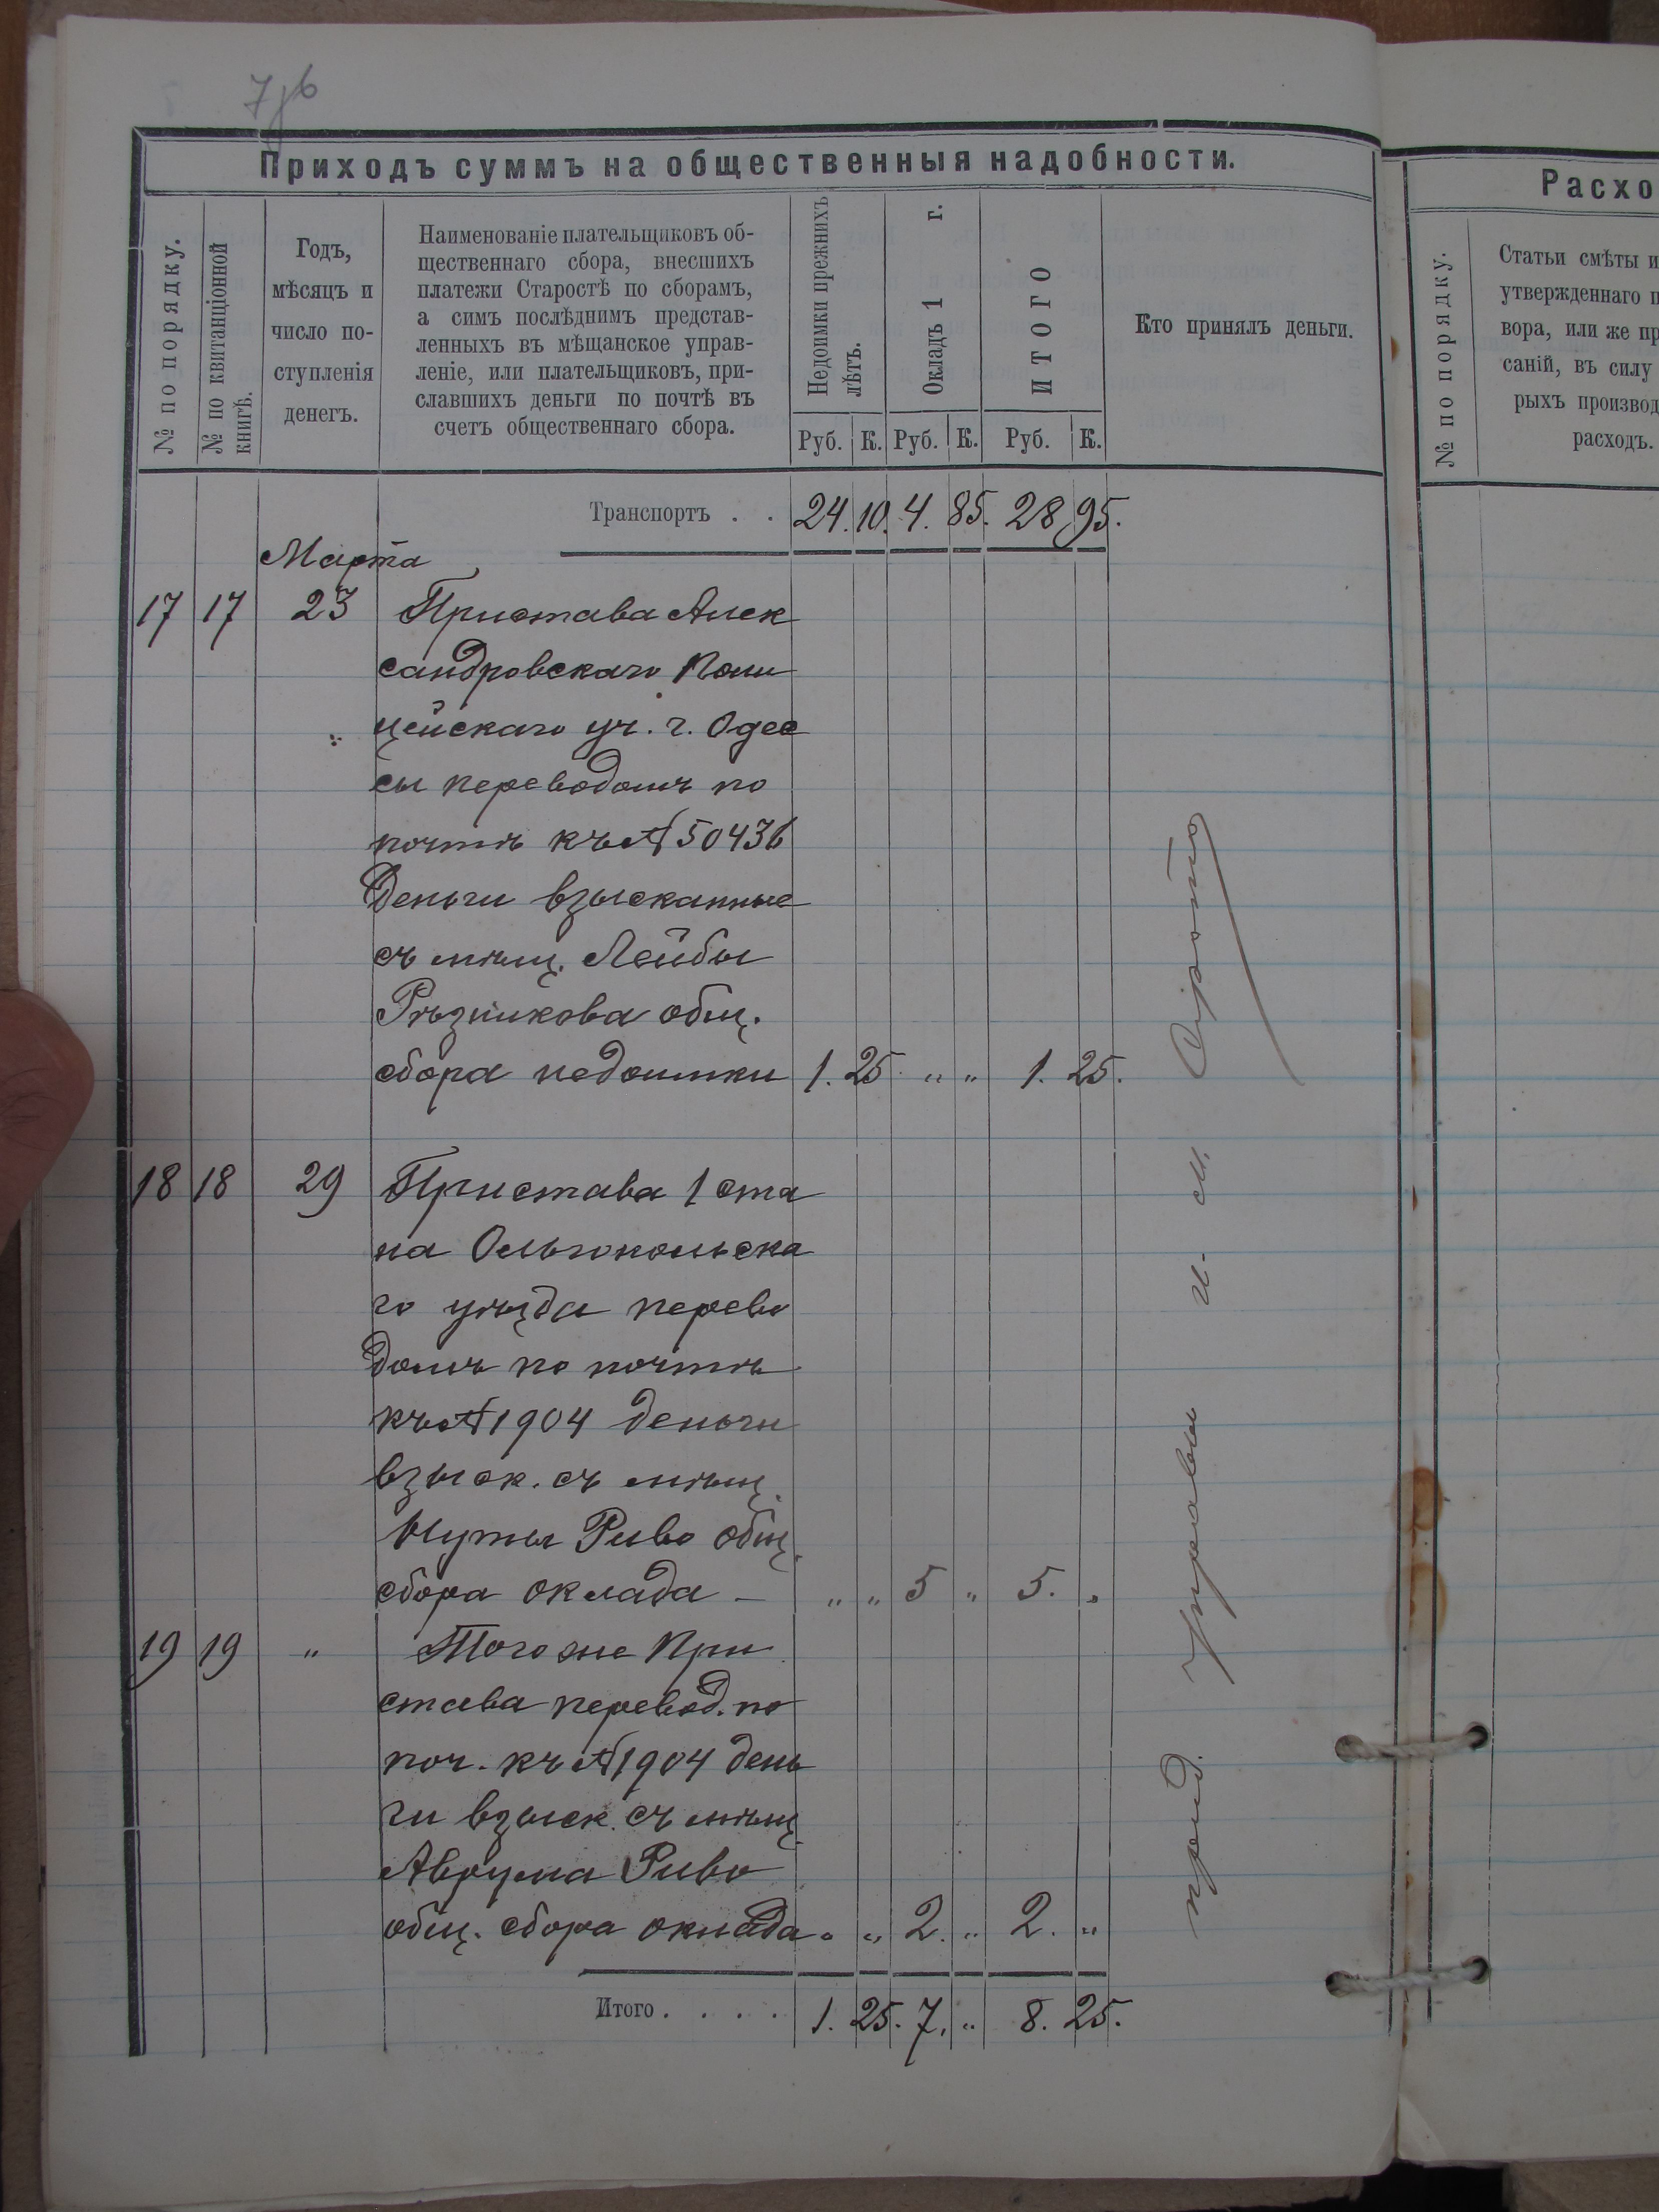 Приходъ суммъ на общественныя надобности.
№ по порядку.
№ по квитанціонной
книгѣ.
Годъ,
мѣсяцъ и
число по-
ступленія
денегъ.
Наименованіе плательщиковъ об-
щественнаго сбора, внесшихъ
платежи Старостѣ по сборамъ,
а симъ послѣднимъ представ-
ленныхъ въ мѣщанское управ-
леніе, или плательщиковъ, при-
славшихъ деньги по почтѣ въ
счетъ общественнаго сбора.
Недоимки прежнихъ
лѣтъ.
Окладъ 1 г.
ИТОГО
Кто принялъ деньги.
Руб. К. Руб. К. Руб. К.
Транспортъ . . 24. 10. 4. 85. 28 95.
Марта
17 17 23 Пристава Алек
сандровскаго Поли
цейскаго уч. г. Одес
сы переводомъ по
почтѣ къ № 50436
Деньги взысканные
съ мѣщ. Лейбы
Рѣзникова общ.
сбора недоимки 1. 25 " " 1. 25.
18 18 29 Пристава 1 ста
на Ольгопольска
го уѣзда перево
домъ по почтѣ
къ № 1904 деньги
взыск. съ мѣщ.
Нуты Риво общ.
сбора оклада - " " 5 " 5. "
19 19 " Того же При
става перевод. по
поч. къ № 1904 день
ги взыск. съ мѣщ
Аврума Риво
общ. сбора оклада " " 2. " 2. "
Итого . . . . 1. 25. 7. " 8. 25.
управы и. м.
Расхо
№ по порядку.
Статьи смѣты и
утвержденнаго п
вора, или же пр
саній, въ силу
рыхъ производ
расходъ.